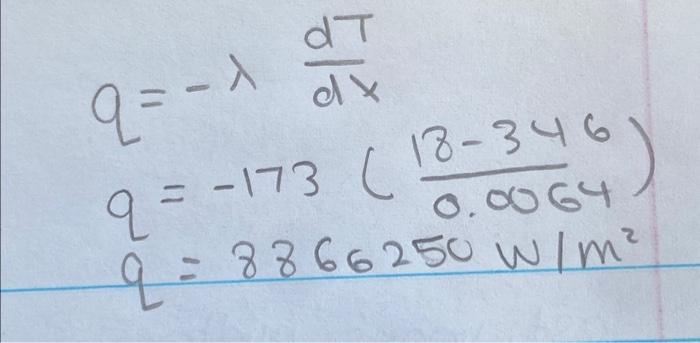 q = -λ dT/dx
q = -173 (18-346/0.0064)
q = 8866250 W/m²